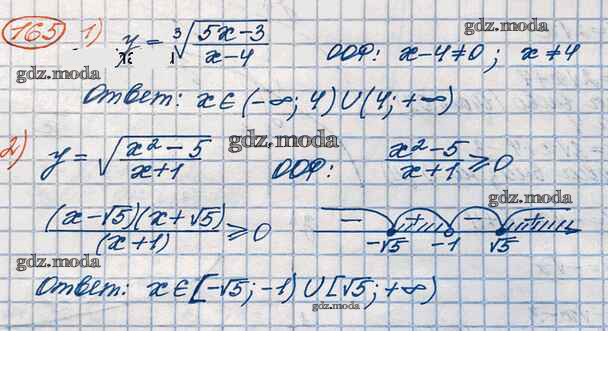 165 1) y = ∛((5x-3)/(x-4)) ООФ: x-4≠0; x≠4
gdz.moda
gdz.moda
Ответ: x∈(-∞; 4)∪(4; +∞)
gdz.moda
2) y = √((x²-5)/(x+1)) gdz.moda ООФ: (x²-5)/(x+1) ⩾ 0
gdz.moda
((x-√5)(x+√5))/(x+1) ⩾ 0
gdz.moda
− + − +
-√5 -1 √5
Ответ: x∈[-√5; -1)∪[√5; +∞)
gdz.moda